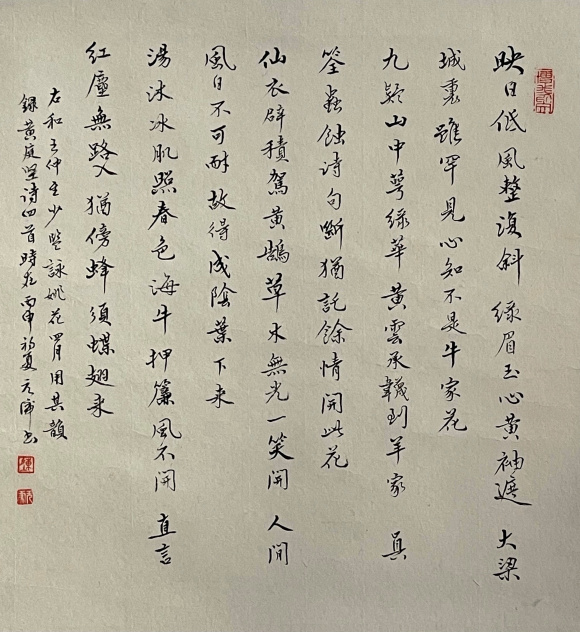 映日低風整復斜 綠眉玉心黃袖遮 大梁
城裏雖罕見心知不是牛家花
九疑山中萼綠華黃雲承韈到羊家 真
筌蟲蝕詩句斷猶託餘情開此花
仙衣辟積駕黃鵠草木無光一笑開 人間
風日不可耐故得成陰葉下來
湯沐冰肌照春色海牛押簾風不開 直言
紅塵無路入猶傍蜂須蝶翅來
右和王仲至少監詠姚花用其韻
錄黃庭堅詩四首時在丙申初夏